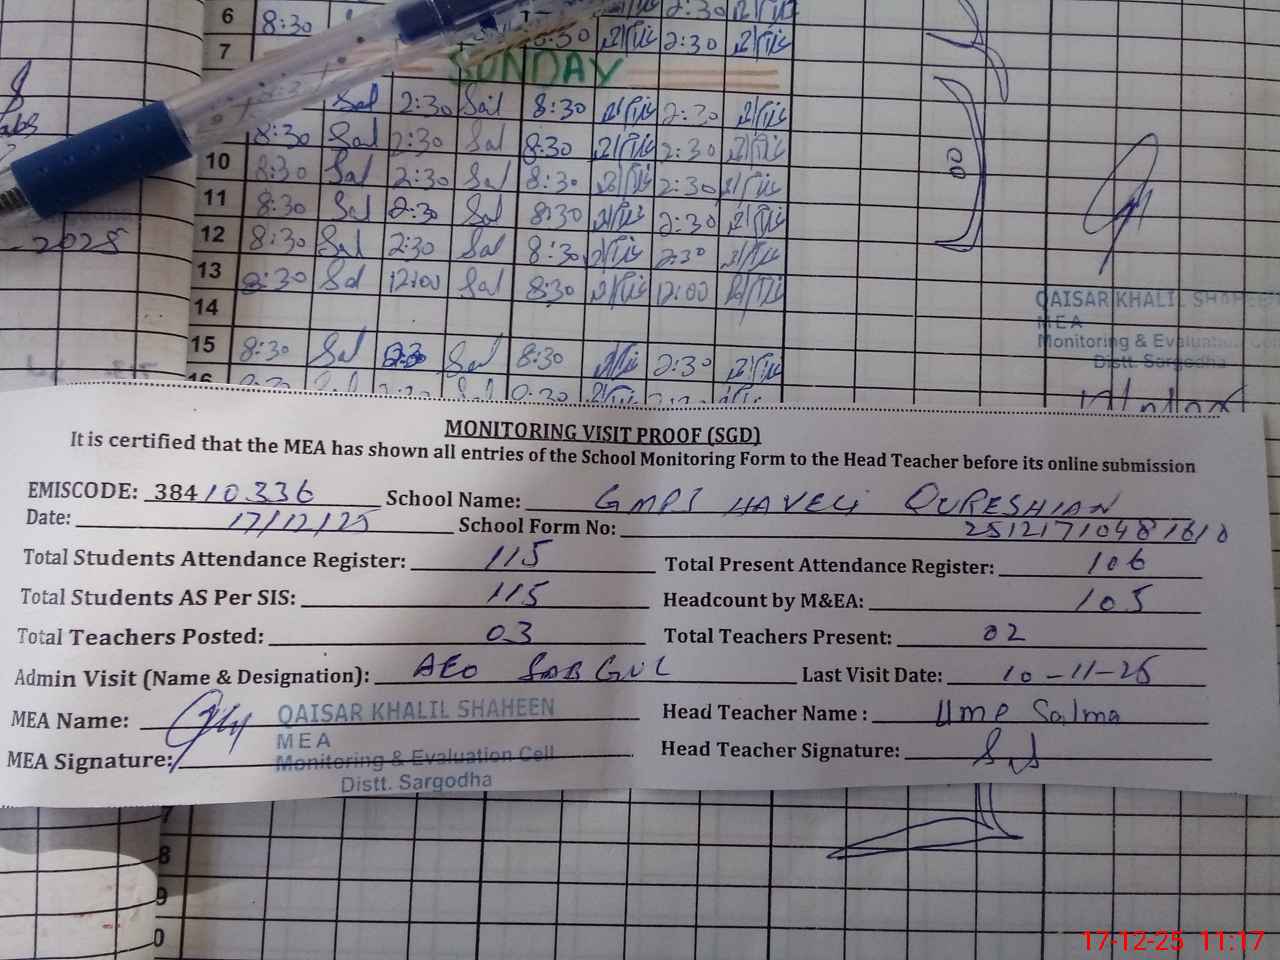 6 8:30 2:30
7 8:30 2:30
SUNDAY
Sal 2:30 Sal 8:30 2:30
8:30 Sal 2:30 Sal 8:30 2:30
10 8:30 Sal 2:30 Sal 8:30 2:30
11 8:30 Sal 2:30 Sal 8:30 2:30
12 8:30 Sal 2:30 Sal 8:30 2:30
13 8:30 Sal 12:00 Sal 8:30 12:00
14
15 8:30 Sal 2:30 Sal 8:30 2:30
16
2025
00
QAISAR KHALIL SHAHEEN
MEA
Monitoring & Evaluation Cell
Distt. Sargodha
MONITORING VISIT PROOF (SGD)
It is certified that the MEA has shown all entries of the School Monitoring Form to the Head Teacher before its online submission
EMISCODE: 38410336 School Name: GMPS HAVELI QURESHIAN
Date: 17/12/25 School Form No: 25121710481610
Total Students Attendance Register: 115 Total Present Attendance Register: 106
Total Students AS Per SIS: 115 Headcount by M&EA: 105
Total Teachers Posted: 03 Total Teachers Present: 02
Admin Visit (Name & Designation): AEO SAB GUL Last Visit Date: 10-11-25
MEA Name: QAISAR KHALIL SHAHEEN Head Teacher Name : Ume Salma
MEA
MEA Signature: Monitoring & Evaluation Cell Head Teacher Signature:
Distt. Sargodha
8
9
0
17-12-25 11:17